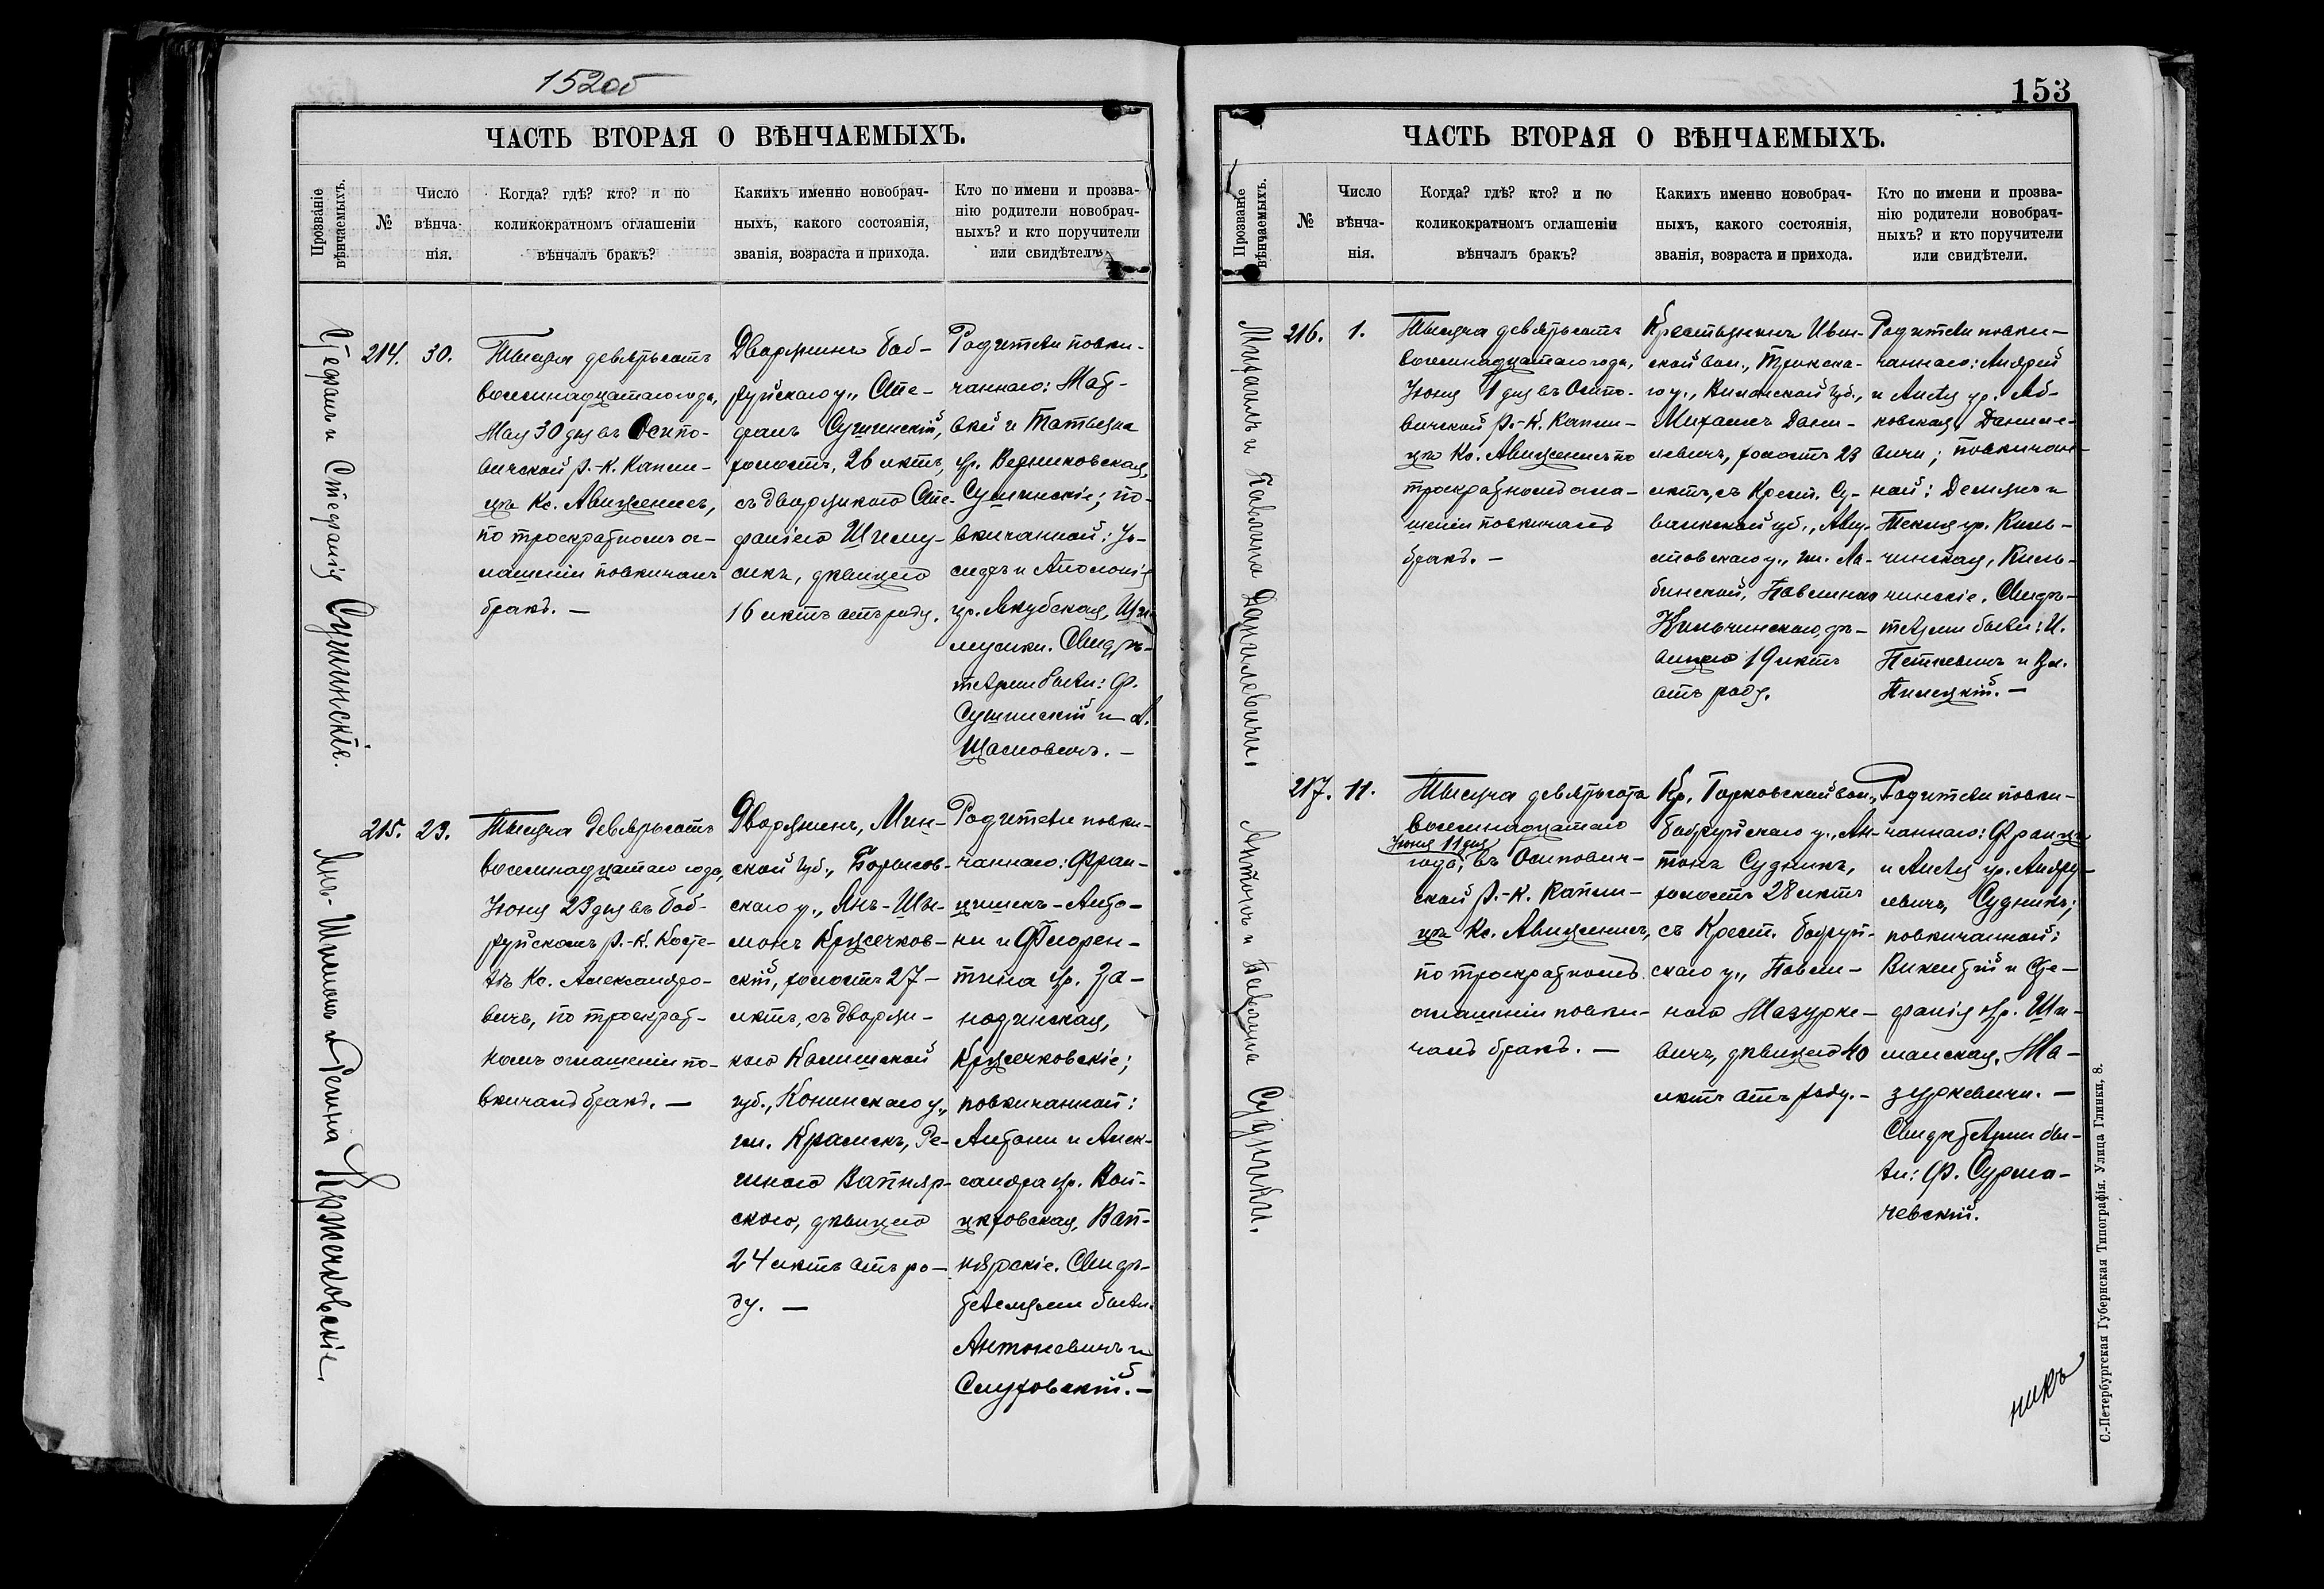 152об
ЧАСТЬ ВТОРАЯ О ВѢНЧАЕМЫХЪ.
Прозваніе вѣнчаемыхъ.
№
Число
вѣнча-
нія.
Когда? гдѣ? кто? и по
коликократномъ оглашеніи
вѣнчалъ бракъ?
Какихъ именно новобрач-
ныхъ, какого состоянія,
званія, возраста и прихода.
Кто по имени и прозва-
нію родители новобрач-
ныхъ? и кто поручители
или свидѣтели.
Стефанъ и Стефанія Сушинскіе.
214.
30.
Тысяча девятьсотъ
восемнадцатаго года,
Мая 30 дня въ Осипо-
вичской р.-к. капли-
цѣ Кс. Авиженисъ,
по троекратномъ ог-
лашеніи повѣнчалъ
бракъ. —
Дворянинъ боб-
руйскаго у., Сте-
фанъ Сушинскій,
холостъ, 26 лѣтъ,
съ дворянкою Сте-
фаніею
дѣвицею
16 лѣтъ отъ роду.
Родители повѣн-
чаннаго: Мат-
вей и Татьяна
ур. Верниковская,
Сушинскіе; по-
вѣнчанной: Іо-
сифъ и Аполонія
ур. Якубская,
Свидѣ-
телями были: Ф.
Сушинскій и А.
Щасновичъ. —
Янъ-Шимонъ и Регина Кржечковскіе.
215.
23.
Тысяча девятьсотъ
восемнадцатаго года,
Іюня 23 дня въ боб-
руйскомъ р.-к. косте-
лѣ Кс. Александро-
вичъ, по троекрат-
номъ оглашеніи по-
вѣнчалъ бракъ. —
Дворянинъ, Мин-
ской губ., Борисов-
скаго у., Янъ-Ши-
монъ Кржечков-
скій, холостъ 27-
лѣтъ, съ дворян-
кою Калишской
губ., Конинскаго у.,
гм. Крамскъ, Ре-
гиною Вапняр-
скою, дѣвицею
24 лѣтъ отъ ро-
ду. —
Родители повѣн-
чаннаго: Фран-
цишекъ-Анто-
ни и Флорен-
тина ур. За-
нодинская,
Кржечковскіе;
повѣнчанной:
Антони и Алек-
сандра ур. Вой-
цѣховская, Вап-
нярскіе. Свидѣ-
телями были:
Антоневичъ и
Слуховскій. —
153
ЧАСТЬ ВТОРАЯ О ВѢНЧАЕМЫХЪ.
Прозваніе вѣнчаемыхъ.
№
Число
вѣнча-
нія.
Когда? гдѣ? кто? и по
коликократномъ оглашеніи
вѣнчалъ бракъ?
Какихъ именно новобрач-
ныхъ, какого состоянія,
званія, возраста и прихода.
Кто по имени и прозва-
нію родители новобрач-
ныхъ? и кто поручители
или свидѣтели.
Михаилъ и Павлина Данилевичи.
216.
1.
Тысяча девятьсотъ
восемнадцатаго года,
Іюня 1 дня въ Осипо-
вичской р.-к. капли-
цѣ Кс. Авиженисъ по
троекратномъ огла-
шеніи повѣнчалъ
бракъ. —
Крестьянинъ
ской вол., Трокска-
го у., Виленской губ.,
Михаилъ Дани-
левичъ, холостъ 23
лѣтъ, съ крест. Су-
валкской губ., Авгу-
стовскаго у., гм. Ла-
бинской, Павлиною
Кильчинскою, дѣ-
вицею 19 лѣтъ
отъ роду.
Родители повѣн-
чаннаго: Андрей
и Анеля ур. Аб-
новская, Даниле-
вичи; повѣнчан-
ной: Демьянъ и
Текля ур. Киль-
чинская, Киль-
чинскіе. Свидѣ-
телями были: И.
Петкевичъ и Вл.
Пилецкій. —
Антонъ и Павлина Судники.
217.
11.
Тысяча девятьсотъ
восемнадцатаго
Іюня 11 дня
года, въ Осипович-
ской р.-к. капли-
цѣ Кс. Авиженисъ,
по троекратномъ
оглашеніи повѣн-
чалъ бракъ. —
Кр. Горковской вол.,
бобруйскаго у., Ан-
тонъ Судникъ,
холостъ 28 лѣтъ
съ крест. бобруй-
скаго у., Павли-
ною Мазурке-
вичъ, дѣвицею 40
лѣтъ отъ роду. —
Родители повѣн-
чаннаго: Францъ
и Анеля ур. Андру-
левичъ, Судникъ;
повѣнчанной:
Викентій и Сте-
фанія ур. Ши-
манская, Ма-
зуркевичи. —
Свидѣтелями бы-
ли: Ф. Сурма-
чевскій.
никъ
С.-Петербургская Губернская Типографія. Улица Глинки, 8.